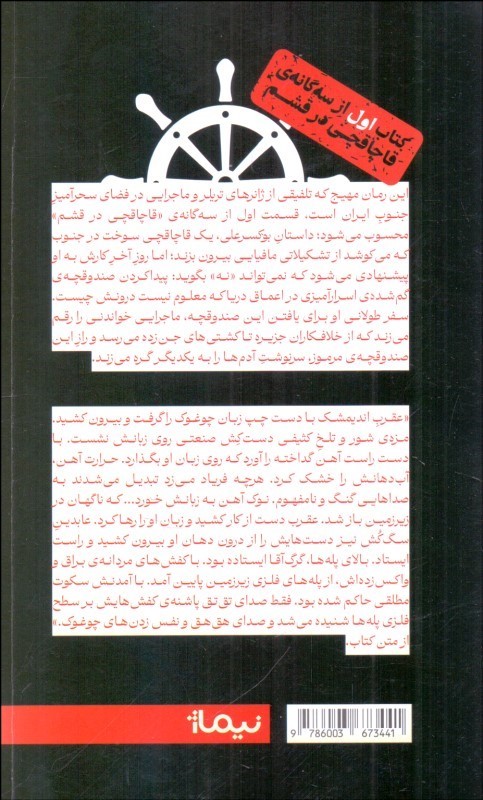 کتاب اول از سه‌گانه‌ی
قاچاقچی در قشم
این رمان مهیج که تلفیقی از ژانرهای تریلر و ماجرایی در فضای سحرآمیزِ
جنوبِ ایران است، قسمت اول از سه‌گانه‌ی «قاچاقچی در قشم»
محسوب می‌شود؛ داستانِ بوکسرعلی، یک قاچاقچی سوخت در جنوب
که می‌کوشد از تشکیلاتی مافیایی بیرون بزند؛ اما روزِ آخرِ کارش به او
پیشنهادی می‌شود که نمی‌تواند «نه» بگوید؛ پیداکردن صندوقچه‌ی
گم‌شده‌ی اسرارآمیزی در اعماق دریا که معلوم نیست درونش چیست.
سفر طولانی او برای یافتن این صندوقچه، ماجرایی خواندنی را رقم
می‌زند که از خلافکاران جزیره تا کشتی‌های جن‌زده می‌رسد و رازِ این
صندوقچه‌ی مرموز، سرنوشتِ آدم‌ها را به یکدیگر گره می‌زند.
«عقربِ اندیمشک با دست چپ زبان چوغوک را گرفت و بیرون کشید.
مزه‌ی شور و تلخِ کثیفی دستکش صنعتی روی زبانش نشست. با
دست راست آهن گداخته را آورد که روی زبان او بگذارد. حرارت آهن،
آب‌دهانش را خشک کرد. هرچه فریاد می‌زد تبدیل می‌شدند به
صداهایی گنگ و نامفهوم. نوک آهن به زبانش خورد... که ناگهان در
زیرزمین باز شد. عقرب دست از کار کشید و زبان او را رها کرد. عابدین
سگ‌کُش نیز دست‌هایش را از درون دهان او بیرون کشید و راست
ایستاد. بالای پله‌ها، گرگ‌آقا ایستاده بود. با کفش‌های مردانه‌ی براق و
واکس‌زده‌اش، از پله‌های فلزی زیرزمین پایین آمد. با آمدنش سکوت
مطلقی حاکم شده بود. فقط صدای تق‌تق پاشنه‌ی کفش‌هایش بر سطح
فلزی پله‌ها شنیده می‌شد و صدای هق‌هق و نفس زدن‌های چوغوک.»
از متن کتاب.
نیماژ
9 786003 673441